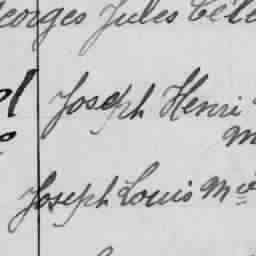 Georges Jules Céle
Joseph Henri
m
Joseph Louis Mie